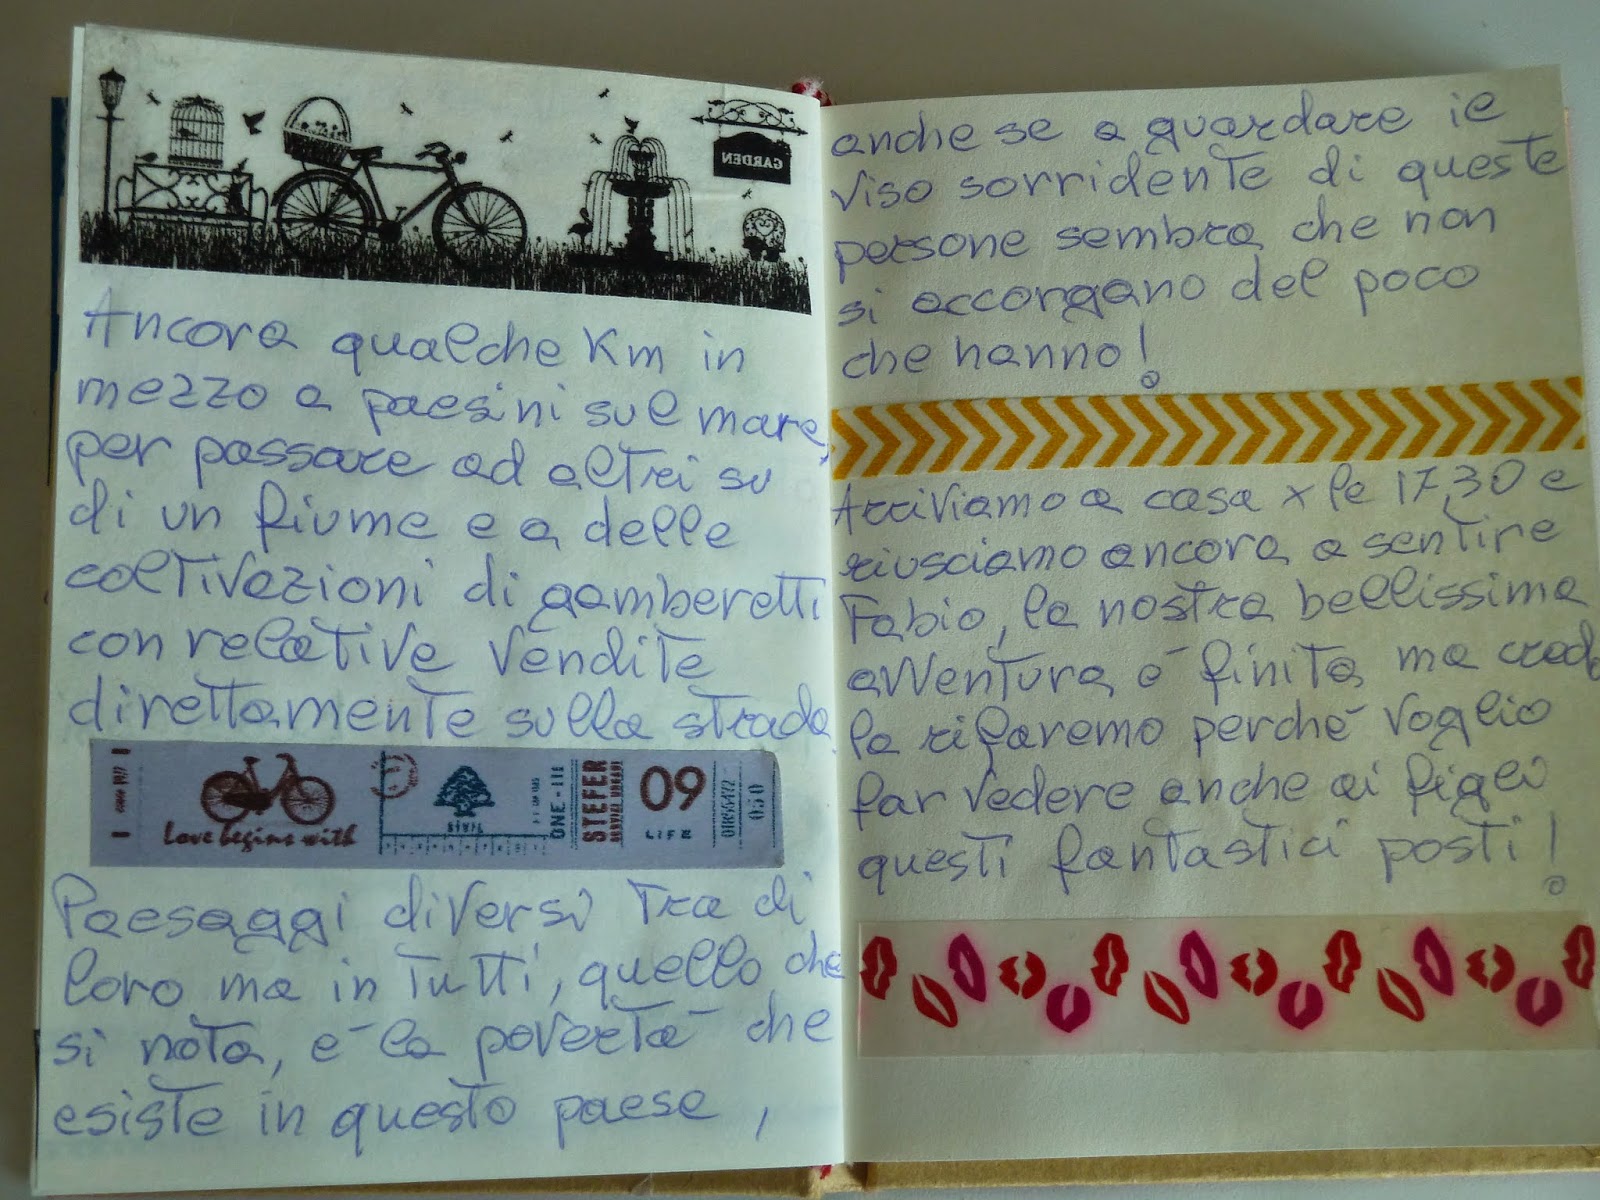 GARDEN
Ancora qualche Km in
mezzo a paesini sul mare,
per passare ad altri su
di un fiume e a delle
coltivazioni di gamberetti
con relative vendite
direttamente sulla strada.
Love begins with
ONE-111
STEFER
09
LIFE
050
Paesaggi diversi tra di
loro ma in tutti, quello che
si nota, è la povertà che
esiste in questo paese,
anche se a guardare il
viso sorridente di queste
persone sembra che non
si accorgano del poco
che hanno!
Arriviamo a casa x le 17,30 e
riusciamo ancora a sentire
Fabio, la nostra bellissima
avventura è finita ma credo
la rifaremo perché voglio
far vedere anche ai figli
questi fantastici posti!